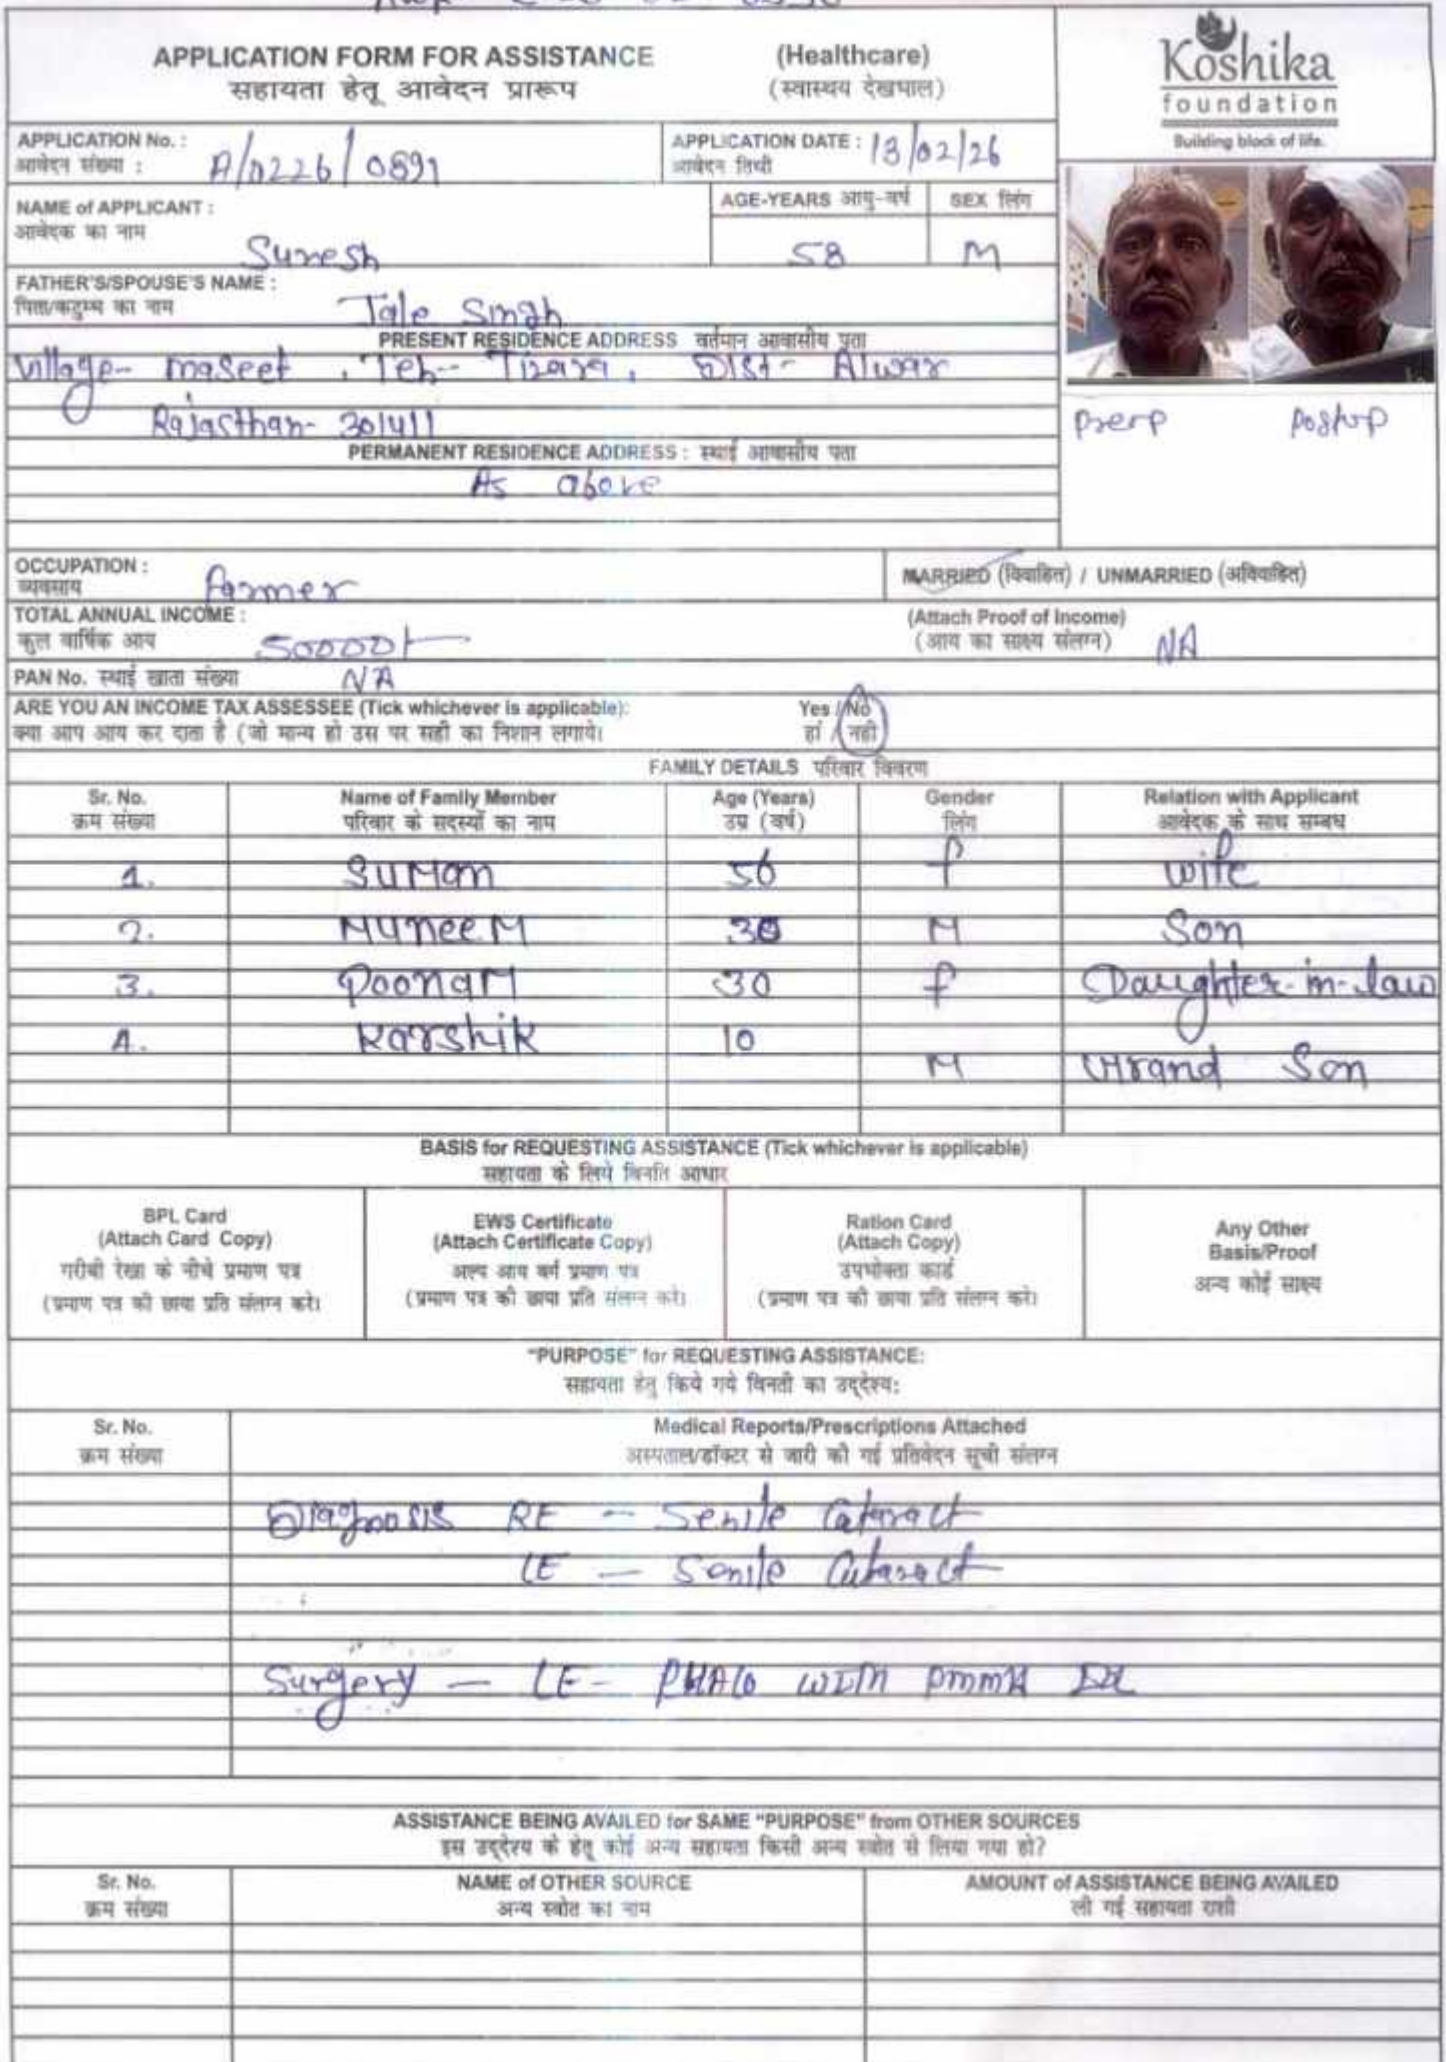 APPLICATION FORM FOR ASSISTANCE (Healthcare)
सहायता हेतू आवेदन प्रारूप (स्वास्थय देखभाल)
Koshika
foundation
Building block of life.
APPLICATION No. : A/0226/0891
आवेदन संख्या :
APPLICATION DATE : 13/02/26
आवेदन तिथी
NAME of APPLICANT :
आवेदक का नाम
Suresh
AGE-YEARS आयु-वर्ष SEX लिंग
58 M
FATHER'S/SPOUSE'S NAME :
पिता/कटुम्ब का नाम
Tale Singh
PRESENT RESIDENCE ADDRESS वर्तमान आवासीय पता
Village- maseet , Teh- Tizara, Dist- Alwar
Rajasthan- 301411
Preop Postop
PERMANENT RESIDENCE ADDRESS : स्थाई आवासीय पता
As above
OCCUPATION : Farmer
व्यवसाय
MARRIED (विवाहित) / UNMARRIED (अविवाहित)
TOTAL ANNUAL INCOME :
कुल वार्षिक आय 50000/-
(Attach Proof of Income)
(आय का साक्ष्य संलग्न) NA
PAN No. स्थाई खाता संख्या NA
ARE YOU AN INCOME TAX ASSESSEE (Tick whichever is applicable): Yes / No
क्या आप आय कर दाता है (जो मान्य हो उस पर सही का निशान लगाये। हां / नही
FAMILY DETAILS परिवार विवरण
Sr. No. Name of Family Member Age (Years) Gender Relation with Applicant
क्रम संख्या परिवार के सदस्यों का नाम उम्र (वर्ष) लिंग आवेदक के साथ सम्बध
1. SUMan 56 f wife
2. MuneeM 30 M Son
3. PoonaM 30 f Daughter-in-law
4. Karshik 10 M Grand Son
BASIS for REQUESTING ASSISTANCE (Tick whichever is applicable)
सहायता के लिये विनति आधार
BPL Card
(Attach Card Copy)
गरीबी रेखा के नीचे प्रमाण पत्र
(प्रमाण पत्र की छाया प्रति संलग्न करे।
EWS Certificate
(Attach Certificate Copy)
अल्प आय वर्ग प्रमाण पत्र
(प्रमाण पत्र की छाया प्रति संलग्न करे।
Ration Card
(Attach Copy)
उपभोक्ता कार्ड
(प्रमाण पत्र की छाया प्रति संलग्न करे।
Any Other
Basis/Proof
अन्य कोई साक्ष्य
"PURPOSE" for REQUESTING ASSISTANCE:
सहायता हेतु किये गये विनती का उद्देश्य:
Sr. No. Medical Reports/Prescriptions Attached
क्रम संख्या अस्पताल/डॉक्टर से जारी की गई प्रतिवेदन सूची संलग्न
Diagnosis RE - Senile Cataract
LE - Senile Cataract
Surgery - LE - PHACO WITH PMMA IOL
ASSISTANCE BEING AVAILED for SAME "PURPOSE" from OTHER SOURCES
इस उद्देश्य के हेतू कोई अन्य सहायता किसी अन्य स्त्रोत से लिया गया हो?
Sr. No. NAME of OTHER SOURCE AMOUNT of ASSISTANCE BEING AVAILED
क्रम संख्या अन्य स्त्रोत का नाम ली गई सहायता राशी